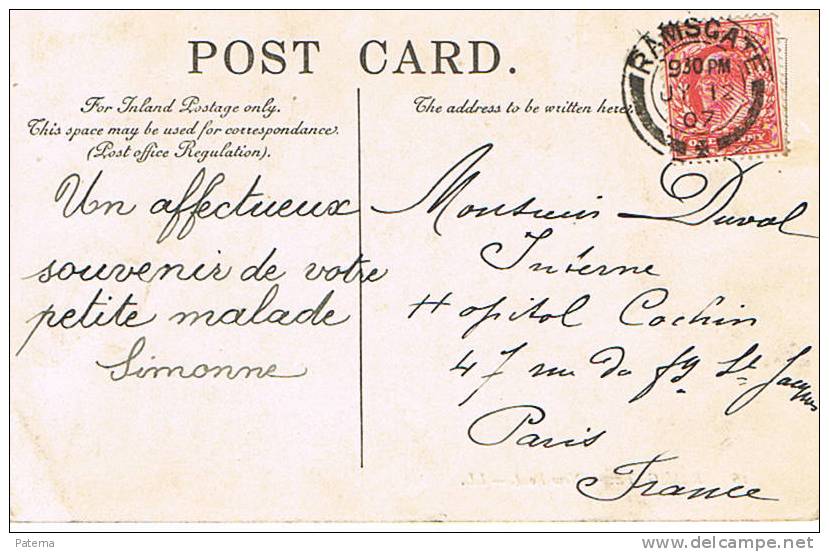 POST CARD.
For Inland Postage only.
This space may be used for correspondance.
(Post office Regulation).
The address to be written here.
RAMSGATE
930 PM
JY 12
07
Un affectueux
souvenir de votre
petite malade
Simonne
Monsieur Duval
Interne
Hopital Cochin
47 rue du fg St Jacques
Paris
France
Paterna
delcampe.net